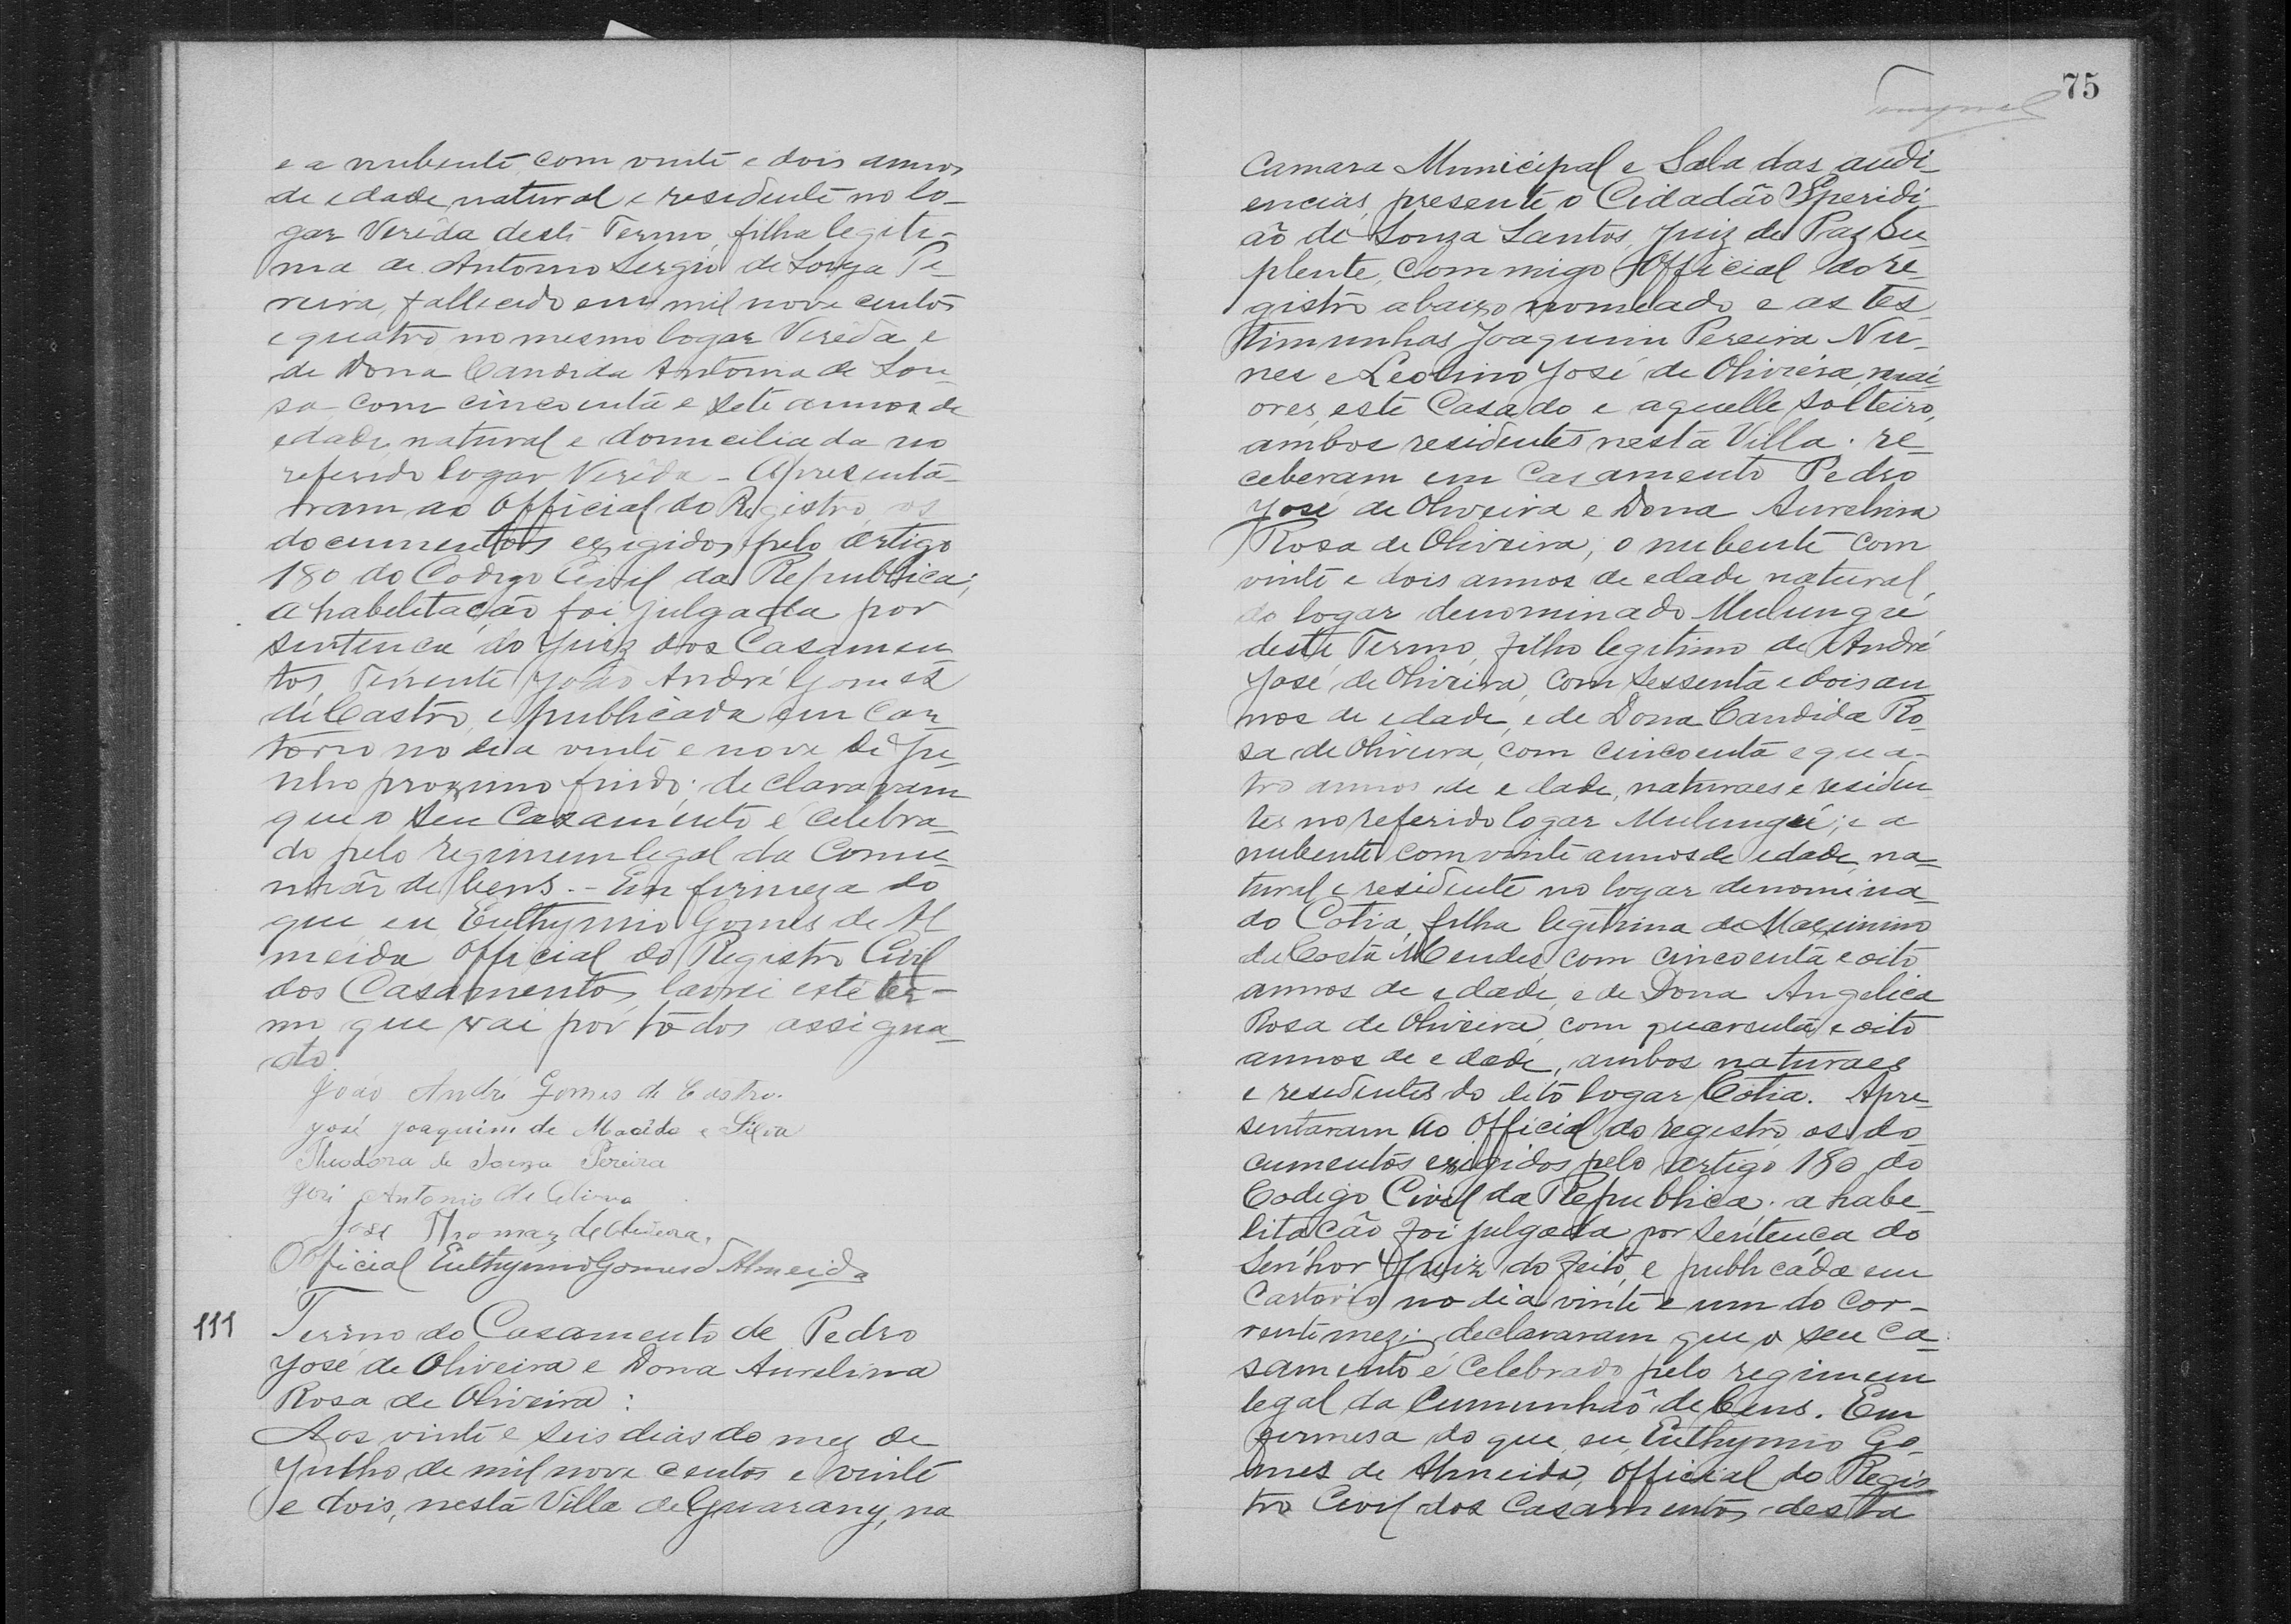 e a nubente com vinte e dois annos
de edade natural e residente no lo-
gar Verêda deste Termo, filha legiti-
ma de Antonio Sergio de Souza Pe-
reira, fallecido em mil nove centos
e quatro no mesmo logar Verêda e
de Dona Candida Antonia de Sou-
sa com cincoenta e sete annos de
edade, natural e domiciliada no
referido logar Verêda - Apresenta-
ram ao Official do Registro os
documentos exigidos pelo artigo
180 do Codigo Civil da Republica;
a habelitação foi julgada por
sentença do Juiz dos Casamen-
tos, Tenente João André Gomes
de Castro, e publicada em car-
torio no dia vinte e nove de Ju-
nho proximo findo; declararam
que o seu Casamento é celebra-
do pelo regimem legal da Comu-
nhão de bens. - Em firmeza do
que eu Euthymio Gomes de Al
meida Official do Registro Civil
dos Casamentos, lavrei este ter-
mo que vai por tôdos assigna-
do.
João André Gomes de Castro.
José Joaquim de Macêdo e Silva
Theodora de Souza Pereira
José Antonio de
José Thomaz de Oliveira.
Official Euthymio Gomes d Almeida
111 Termo do Casamento de Pedro
José de Oliveira e Dona Aurelina
Rosa de Oliveira:
Aos vinte e seis dias do mez de
Julho de mil nove centos e vinte
e dois, nesta Villa de Guarany, na
75
Camara Municipal e Sala das audi-
encias, presente o Cidadão Speridi-
ão de Souza Santos, Juiz de Paz Su-
plente, Commigo Official do re-
gistro abaixo nomeado e as tes-
timunhas Joaquim Pereira Nu-
nes e Leolino José de Oliviera, mai-
ores, este Casado e aquelle solteiro,
ambos residentes nesta Villa. re-
ceberam em Casamento Pedro
José de Oliveira e Dona Aurelina
Rosa de Oliveira; o nubente com
vinte e dois annos de edade natural
do logar denominado Mulungú
deste Termo, filho legitimo de André
José de Oliveira, com sessenta e dois an
nos de edade, e de Dona Candida Ro-
sa de Oliveira, com cincoenta e qua-
tro annos de edade, naturaes e residen
tes no referido logar Mulungú; e a
nubente com vinte annos de edade, na-
tural e residente no logar denomina-
do Cotia, filha legitima de Maximino
da Costa Mendes, com cincoenta e oito
annos de edade, e de Dona Angelica
Rosa de Oliveira, com quarenta e oito
annos de edade, ambos naturaes
e residentes do dito logar Cotia. Apre-
sentaram ao Official do registro os do-
cumentos exigidos pelo artigo 180 do
Codigo Civil da Republica. a habe-
litação foi julgada por sentença do
Senhor Juiz do feito e publicada em
Cartorio no dia vinte e um do cor-
rente mez; declararam que o seu ca-
samento é celebrado pelo regimem
legal da Cumunhão de bens. Em
firmesa do que, eu, Euthymio Go-
mes de Almeida, Official do Regis
tro Civil dos Casamentos, desta